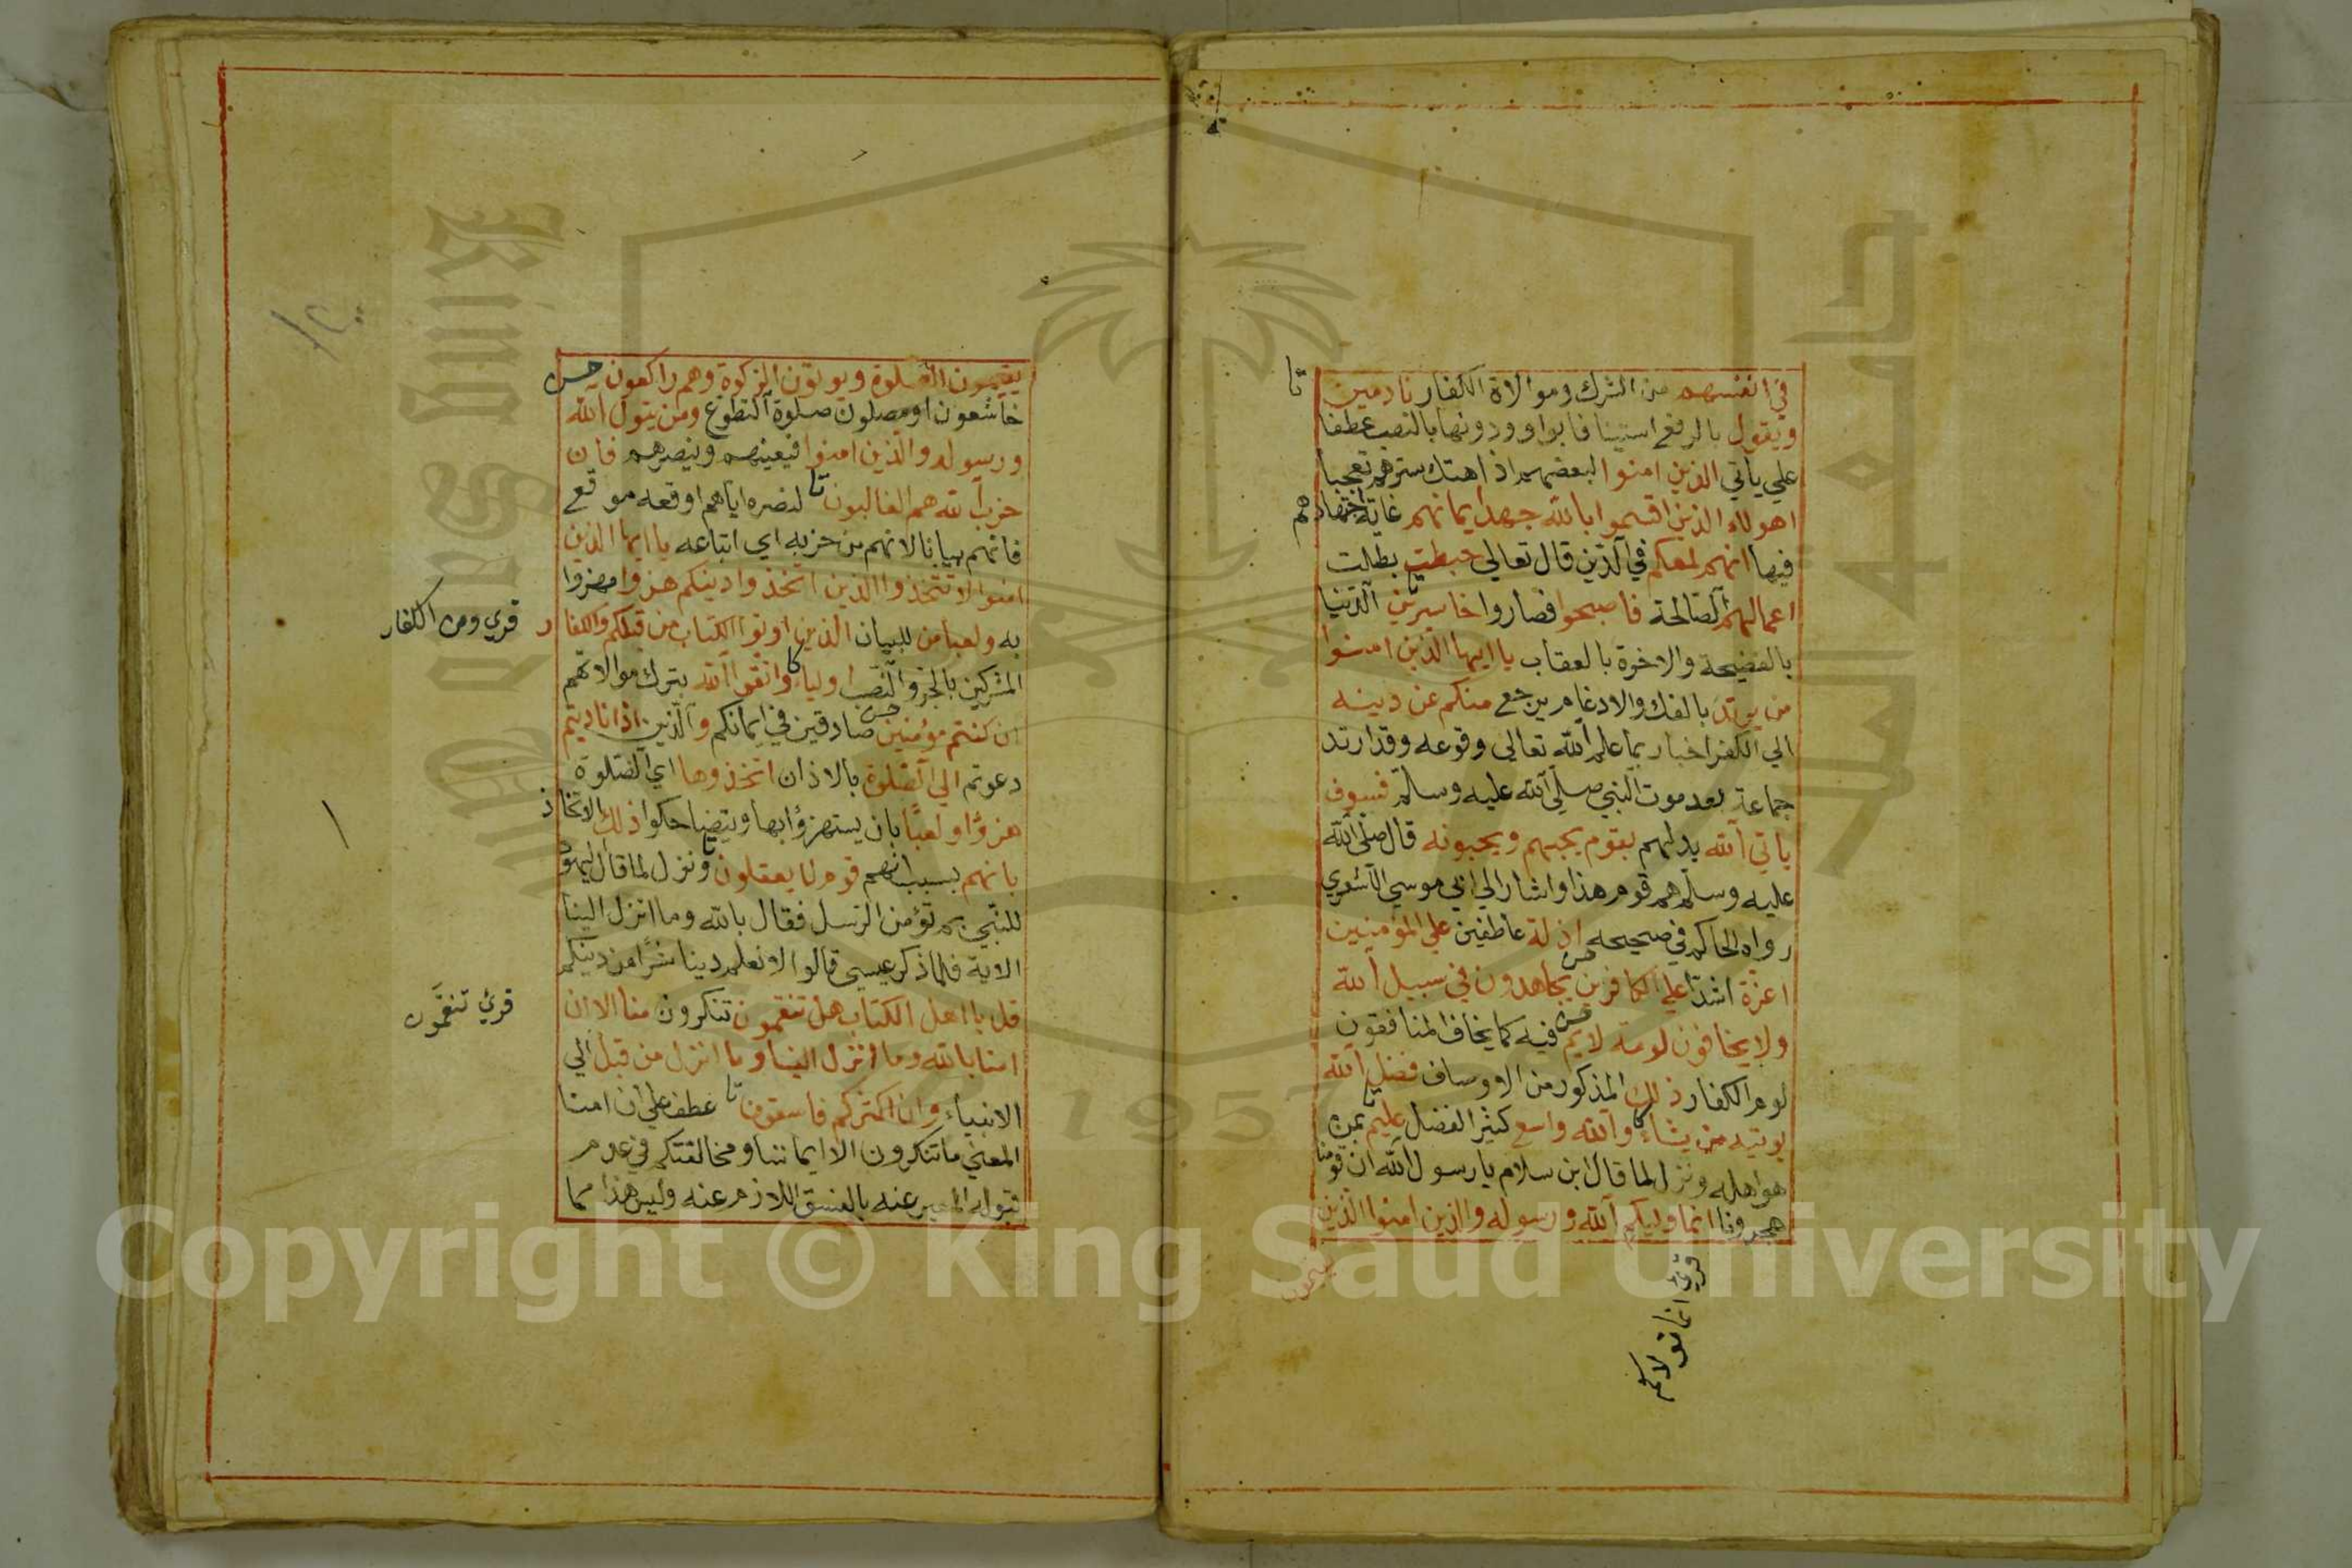 في انفسهم من الشرك وموالاة الكفار نادمين تا
ويقول بالرفع استينافا بواو ودونها بالنصب عطفا
علي ياتي الذين امنوا لبعضهم اذا هتك سترهم تعجبا
اهولاء الذين اقسموا بالله جهد ايمانهم غاية اجتهادهم
فيها انهم لمعكم في الدين قال تعالي حبطت بطلت
اعمالهم الصالحة فاصبحوا فصاروا خاسرين الدنيا
بالفضيحة والاخرة بالعقاب يا ايها الذين امنوا
من يرتد بالفك والادغام يرجع منكم عن دينه
الي الكفر اخبار بما علم الله تعالى وقوعه وقد ارتد
جماعة بعد موت النبي صلي الله عليه وسلم فسوف
ياتي الله بدلهم بقوم يحبهم ويحبونه قال صلى الله
عليه وسلم هم قوم هذا واشار الي ابي موسي الاشعري
رواه الحاكم في صحيحه اذلة عاطفين علي المؤمنين
اعزة اشدا علي الكافرين يجاهدون في سبيل الله
ولا يخافون لومة لايم فيه كما يخاف المنافقون
لوم الكفار ذلك المذكور من الاوصاف فضل الله
يوتيه من يشاء والله واسع كثير الفضل عليم بمن
هو اهله ونزل لما قال ابن سلام يا رسول الله ان قومنا
هجرونا انما وليكم الله ورسوله والذين امنوا الذين
يقيمون
قرئ انما مولاكم
يقيمون الصلوة ويوتون الزكوة وهم راكعون
خاشعون او مصلون صلوة التطوع ومن يتول الله
ورسوله والذين امنوا فيعينهم وينصرهم فان
حزب الله هم الغالبون تا لنصره اياهم اوقعه موقع
فانهم بيانا لانهم من حزبه اي اتباعه يا ايها الذين
امنوا لا تتخذوا الذين اتخذوا دينكم هزوا مهزوا
به ولعبا من للبيان الذين اوتوا الكتاب من قبلكم والكفار
قرئ ومن الكفار
المشركين بالجر والنصب اولياء واتقوا الله بترك موالاتهم
ان كنتم مؤمنين صادقين في ايمانكم والذين اذا ناديتم
دعوتم الي الصلوة بالاذان اتخذوها اي الصلوة
هزؤا ولعبًا بان يستهزؤا بها ويتضاحكوا ذلك الاتخاذ
بانهم بسبب انهم قوم لا يعقلون ونزل لما قال اليهود
للنبي بم تؤمن الرسل فقال بالله وما انزل الينا
الاية فلما ذكر عيسى قالوا لا نعلم دينا شرًا من دينكم
قل يا اهل الكتاب هل تنقمون تنكرون منا الا ان
قرئ تنقَمون
امنا بالله وما انزل الينا وما انزل من قبل الي
الانبياء وان اكثركم فاسقون تا عطف علي ان امنا
المعني ما تنكرون الا ايماننا ومخالفتكم في عدم
قبوله المعبر عنه بالفسق اللازم عنه وليس هذا مما
Copyright © King Saud University
1957